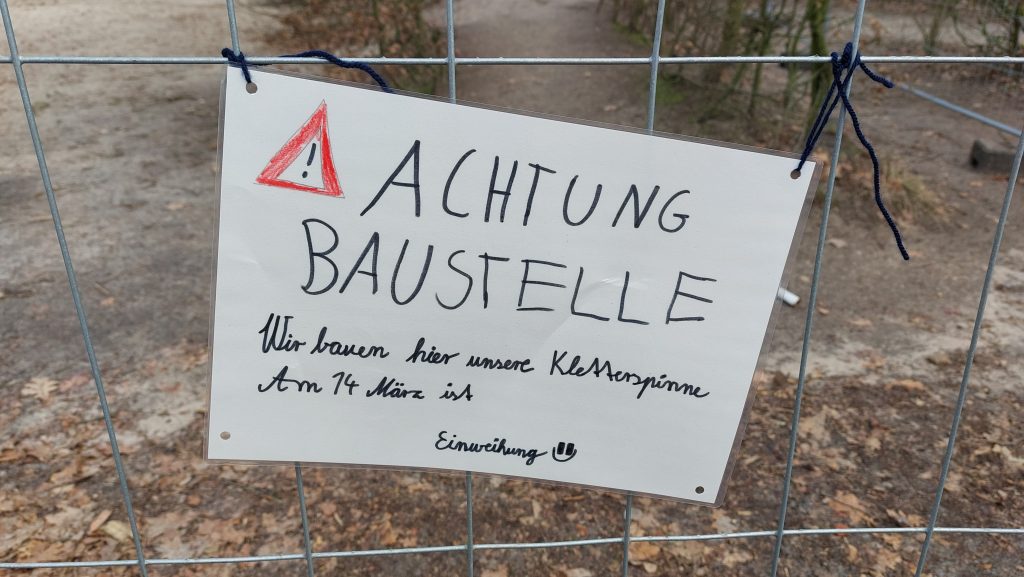 !
ACHTUNG
BAUSTELLE
Wir bauen hier unsere Kletterspinne
Am 14 März ist
Einweihung